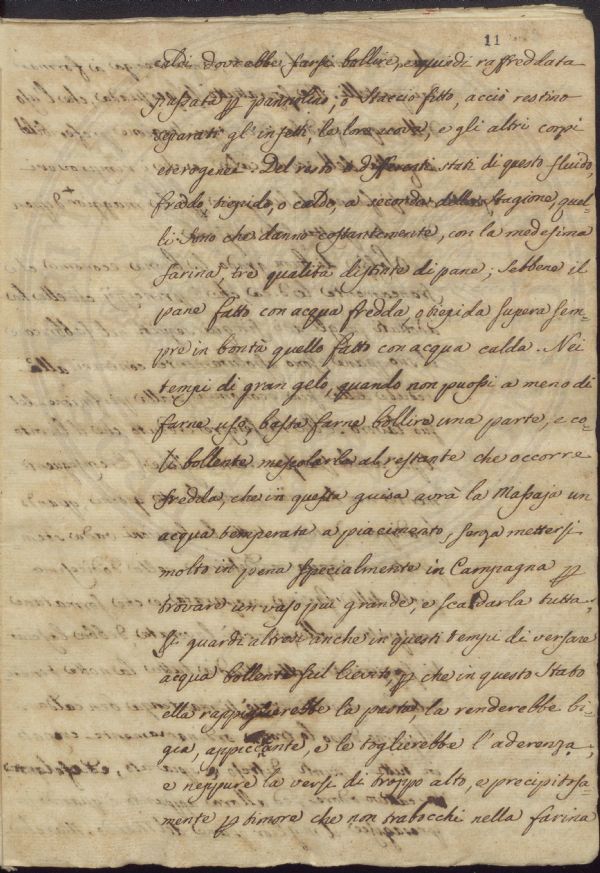 11
caldi dovrebbe farsi bollire, e quindi raffreddata
passata p pannolino, o staccio fitto, acciò restino
separati gl'insetti, le loro uova, e gli altri corpi
eterogenei. Del resto i differenti stati di questo fluido,
fredo, tiepido, o caldo, a seconda della Stagione, quel-
li sono che danno costantemente, con la medesima
farina tre qualità distinte di pane; sebbene il
pane fatto con acqua fredda, o tiepida supera sem-
pre in bontà quello fatto con acqua calda. Nei
tempi di gran gelo, quando non puossi a meno di
farne uso, basta farne bollire una parte, e co-
sì bollente mescolarla al restante che occorre
fredda, che in questa guisa avrà la Massaja un
acqua temperata a piacimento, senza mettersi
molto in pena specialmente in Campagna p
trovare un vaso più grande, e scaldarla tutta,
si guardi altresì anche in questi tempi di versare
acqua bollente sul lievito, p che in questo stato
ella rappiglierebbe la pasta, la renderebbe bi-
gia, appiccante, e le toglierebbe l'aderenza,
e neppure la versi di troppo alto, e precipitosa-
mente p timore che non trabocchi nella farina